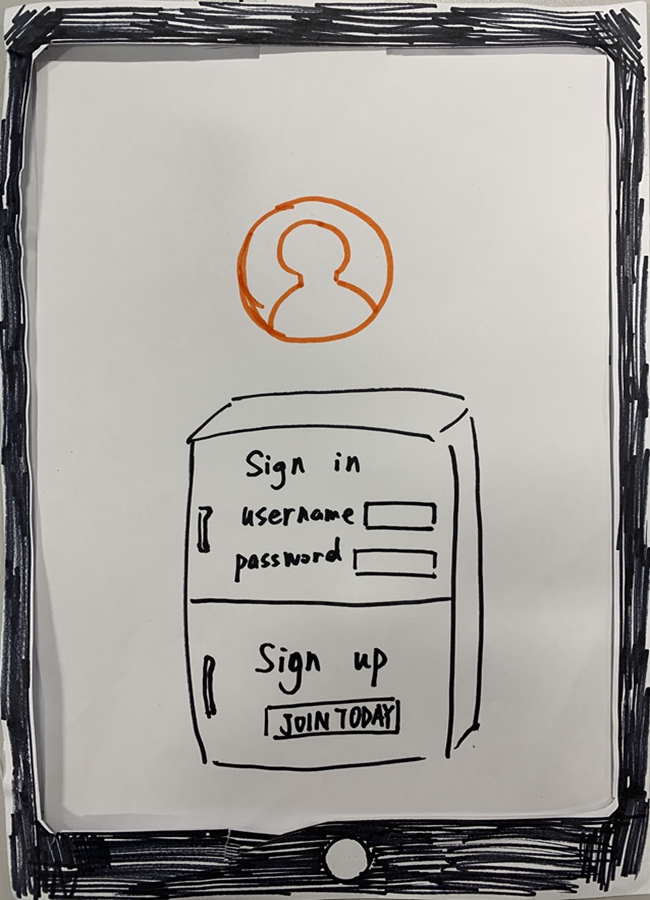 Sign in
username
password
Sign up
JOIN TODAY